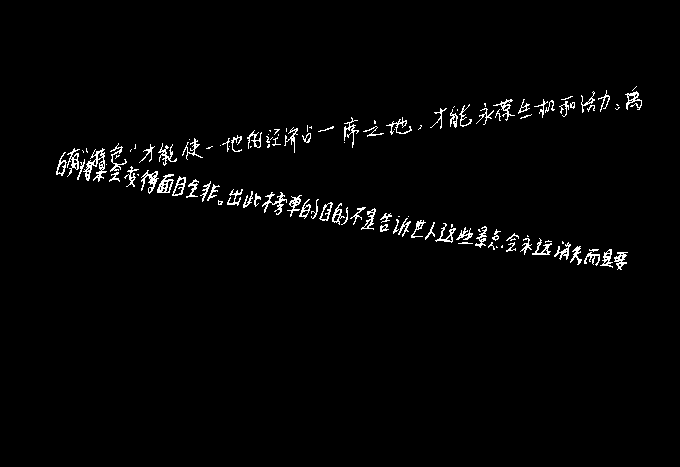 有“特色”才能使一地的经济占一席之地，才能永葆生机和活力。离
的海渠会变得面目全非。出此榜单的目的不是告诉世人这些景点会永远消失而是要